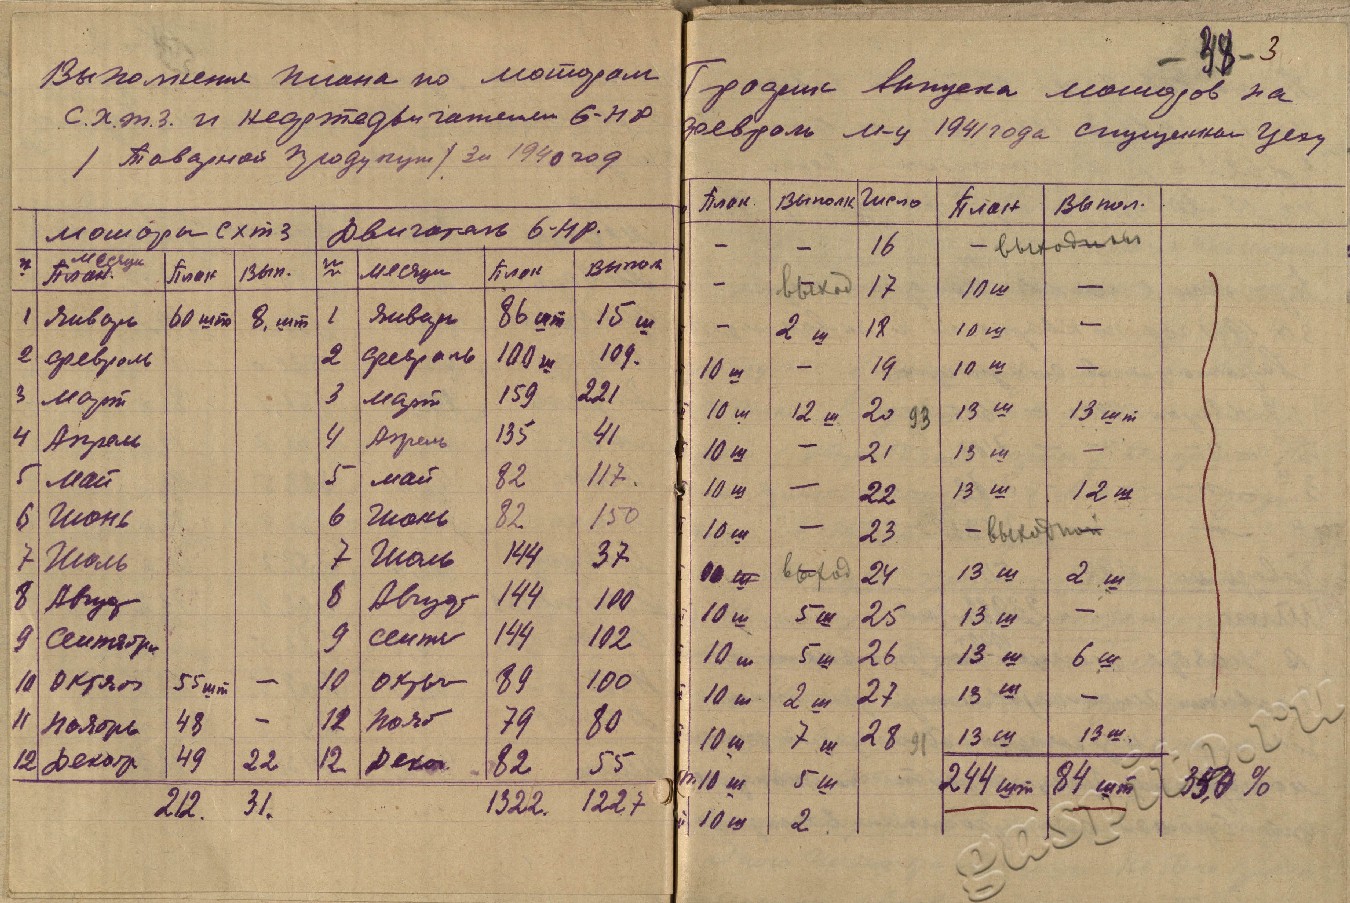 Выполнения плана по моторам
С.Х.Т.З. и нефтедвигателям 6-НР
/ Товарной продукции / За 1940 год
моторы СХТЗ Двигатель 6-НР.
месяцы
№ План. План Вып. № месяцы План Выпол
1 Январь 60 шт 8. шт 1 Январь 86 шт 15 ш
2 февраль 2 февраль 100 ш 109.
3 Март 3 Март 159 221
4 Апрель 4 Апрель 135 41
5 Май 5 май 82 117.
6 Июнь 6 Июнь 82 150
7 Июль 7 Июль 144 37
8 Август 8 Август 144 100
9 Сентябрь 9 сентя 144 102
10 октяб 55 шт — 10 октя 89 100
11 Ноябрь 48 — 12 Нояб 79 80
12 Декабр 49 22 12 Дека. 82 55
212. 31. 1322. 1227
- 38 - 3
График выпуска моторов на
февраль м-ц 1941 года спущенный цеху
План. Выполн Число План Выпол.
— — 16 — выходный
— выход 17 10 ш —
— 2 ш 18 10 ш —
10 ш — 19 10 ш —
10 ш 12 ш 20 93 13 ш 13 шт
10 ш — 21 13 ш —
10 ш — 22 13 ш 12 ш
10 ш — 23 — выходной
10 ш выход 24 13 ш 2 ш
10 ш 5 ш 25 13 ш —
10 ш 5 ш 26 13 ш 6 ш
10 ш 2 ш 27 13 ш —
10 ш 7 ш 28 91 13 ш 13 ш.
10 ш 5 ш 244 шт 84 шт %
10 ш 2
gaspito.ru